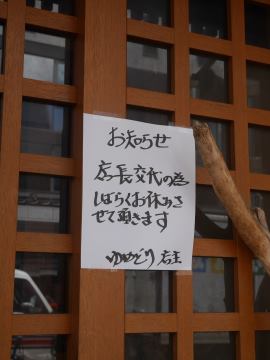 お知らせ
店長交代の為
しばらくお休みさ
せて頂きます
ゆめどり 店主